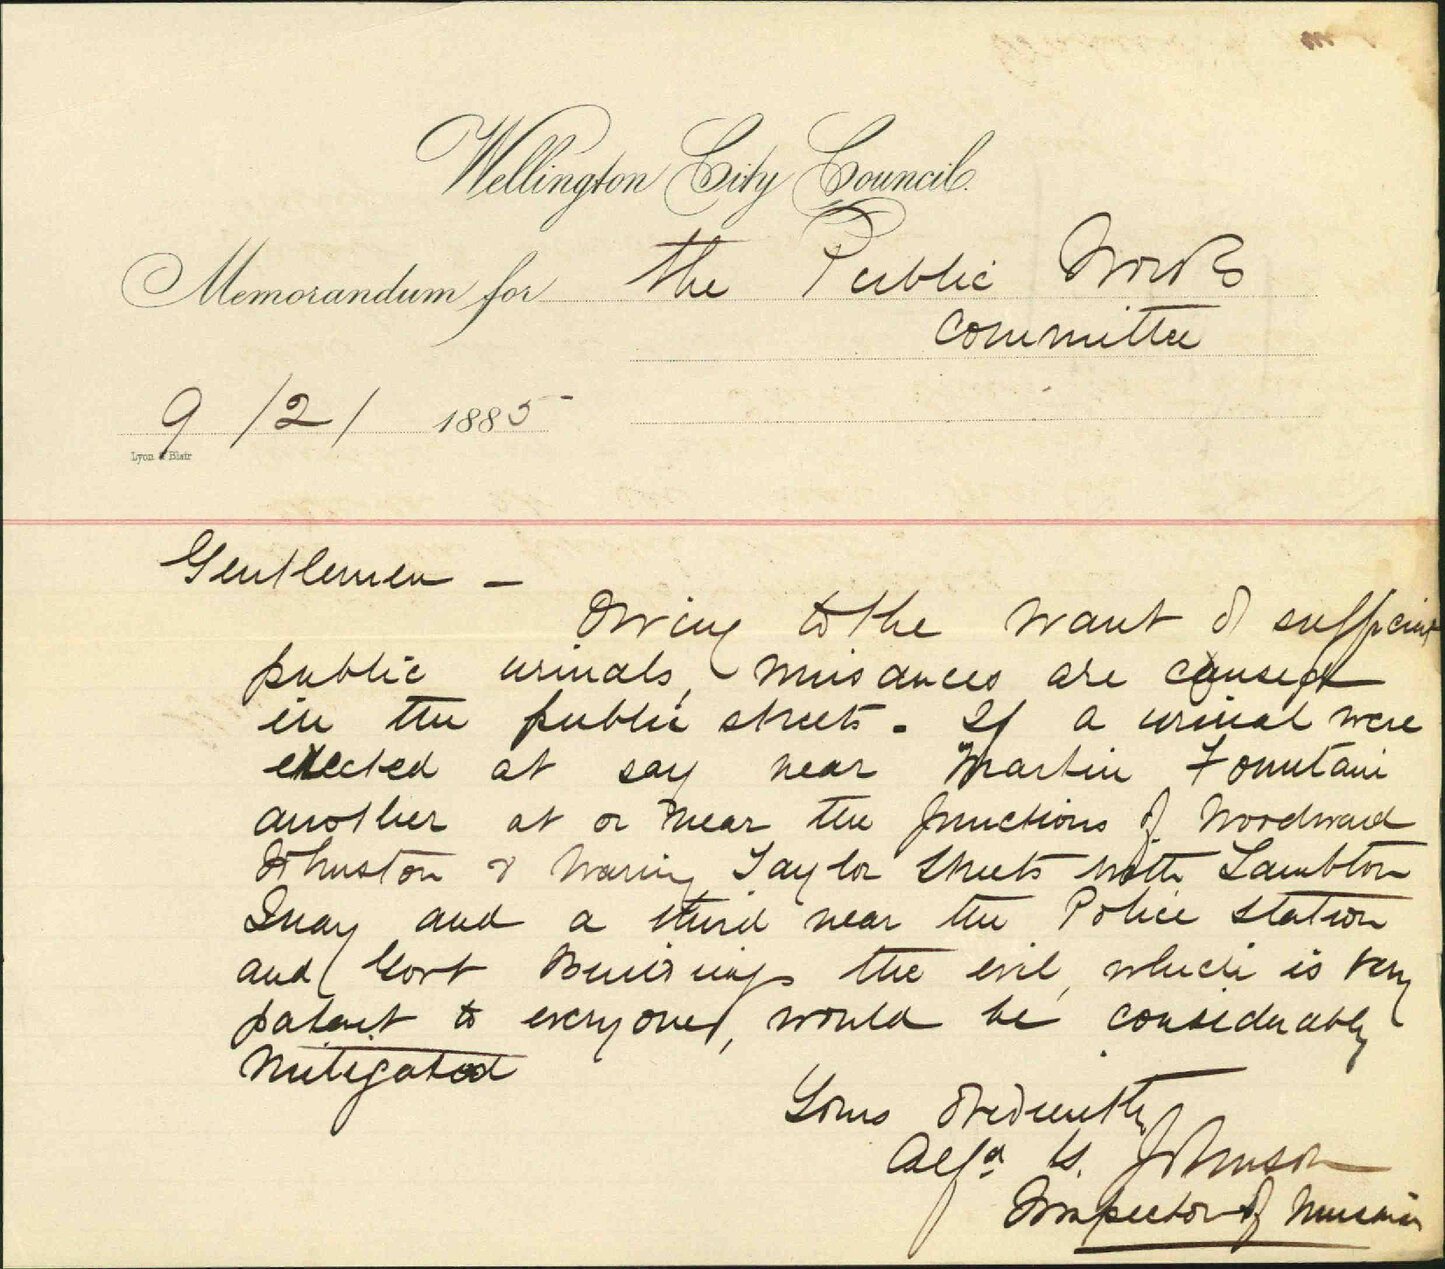 Wellington City Council.
Memorandum for the Public Works
Committee
9/2/ 1885
Lyon & Blair
Gentlemen –
Owing to the want of sufficient
public urinals, nuisances are caused
in the public streets. If a urinal were
erected at say near Martin Fountain
another at or near the junctions of Woodward
Johnston & Waring Taylor Streets with Lambton
Quay and a third near the Police Station
and Govt Buildings the evil, which is very
patent to everyone, would be considerably
mitigated
Yours obediently
Alfd G. Johnson
Inspector of Nuisances